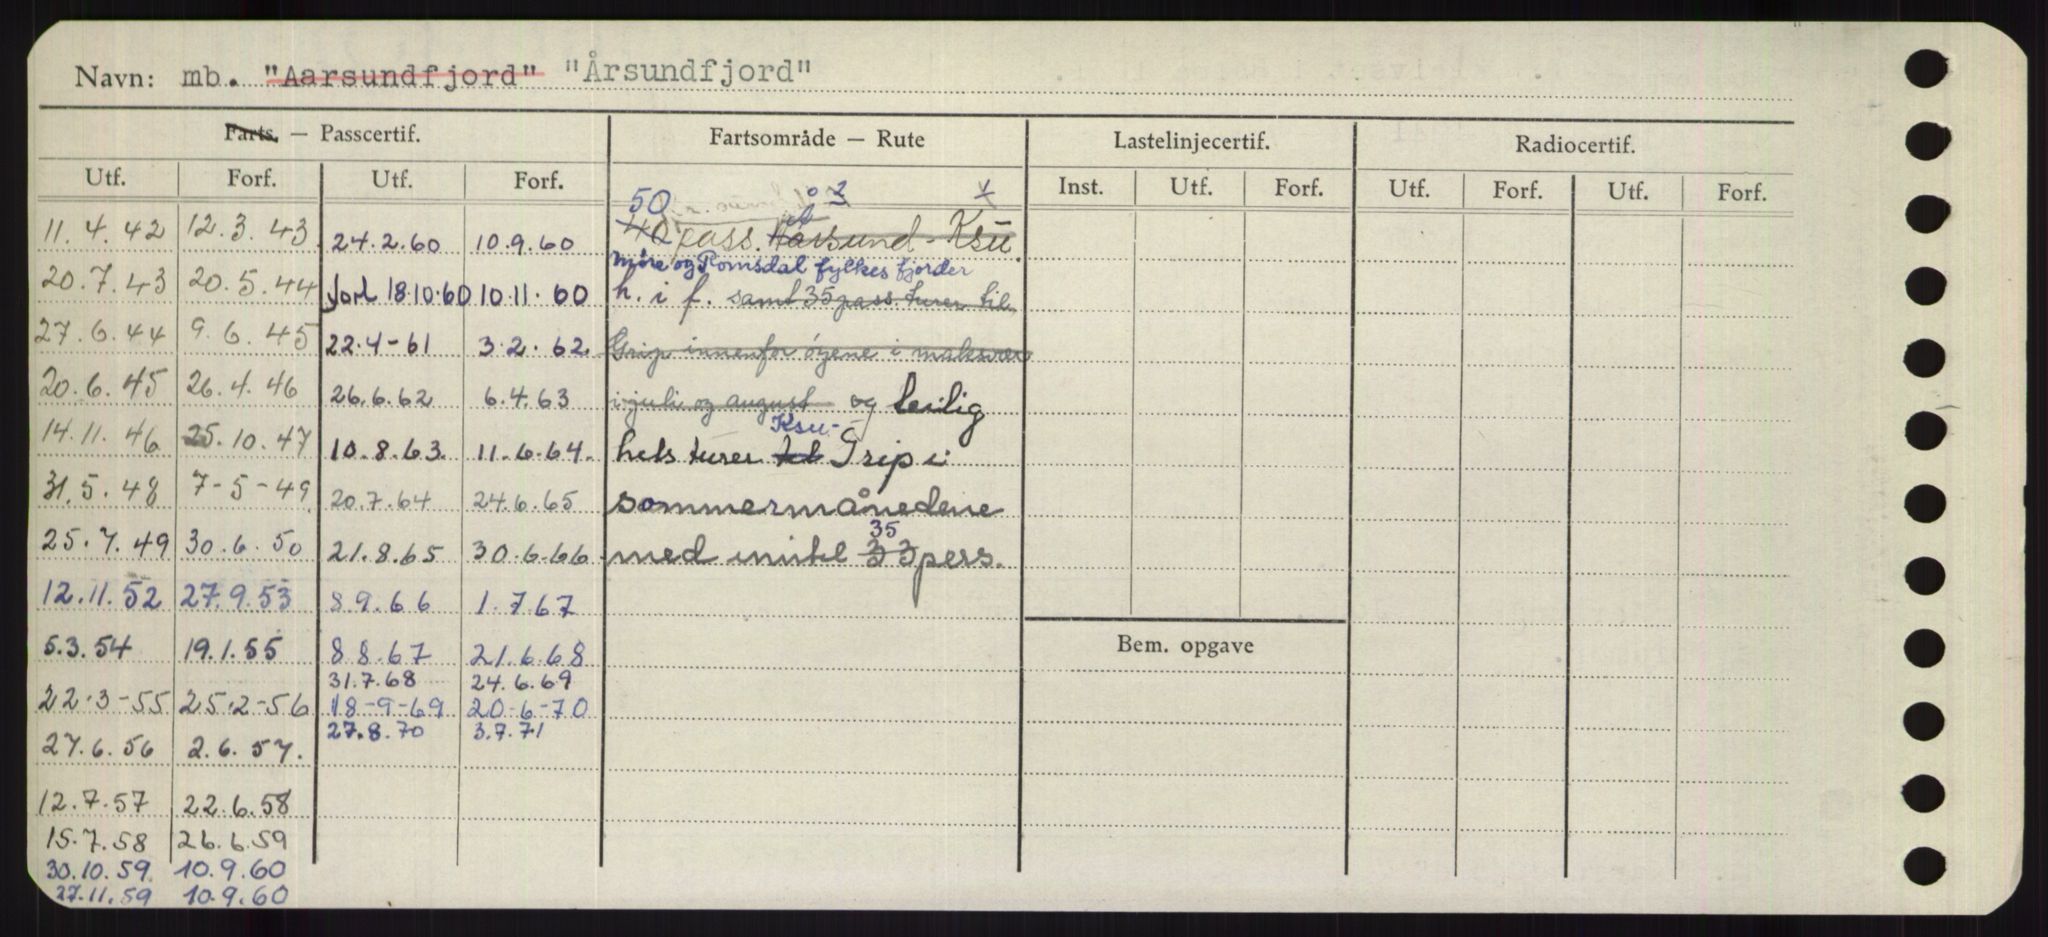 Navn: mb. "Aarsundfjord" "Årsundfjord"
Farts. — Passcertif. Fartsområde — Rute Lastelinjecertif. Radiocertif.
Utf. Forf. Utf. Forf. Inst. Utf. Forf. Utf. Forf. Utf. Forf.
50
11.4.42 12.3.43 24.2.60 10.9.60 40 pass. Aarsund - Ksu.
Møre og Romsdal fylkes fjorder
20.7.43 20.5.44 forl 18.10.60 10.11.60 h. i f. samt 35 pass. turer til
27.6.44 9.6.45 22.4-61 3.2.62 Grip innenfor øyene i maksvær
20.6.45 26.4.46 26.6.62 6.4.63 i juli og august og leilig
Ksu-
14.11.46 25.10.47 10.8.63. 11.6.64. hets turer til Grip i
31.5.48 7-5-49 20.7.64 24.6.65 sommermånedene
35
25.7.49 30.6.50 21.8.65 30.6.66 med inntil 33 pers.
12.11.52 27.9.53 8 9.66 1.7.67
5.3.54 19.1.55 8 8.67 21.6.68
Bem. opgave
31.7.68 24.6.69
22-3-55 25.2-56 18-9-69 20-6-70
27.8.70 3.7.71
27.6.56 2.6.57.
12.7.57 22.6.58
15.7.58 26.6.59
30.10.59 10.9.60
27.11.59 10.9.60